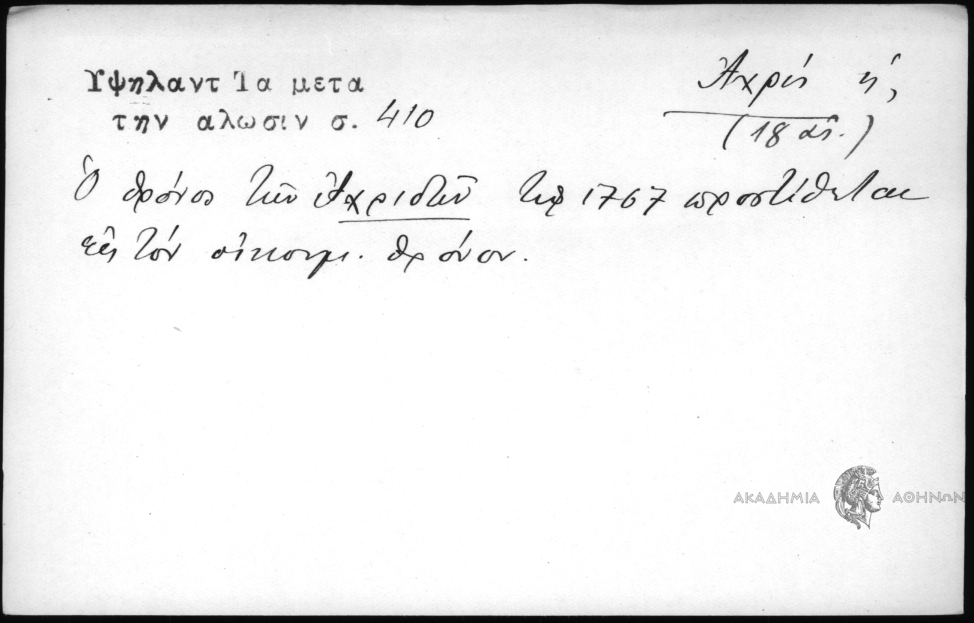 Υψηλαντ Τα μετα
την αλωσιν σ. 410
Ἀχρίς ἡ,
(18 αἰ.)
Ὁ θρόνος τῶν Ἀχριδῶν τῷ 1767 προστίθεται
εἰς τόν οἰκουμ. θρόνον.
ΑΚΑΔΗΜΙΑ ΑΘΗΝΩΝ